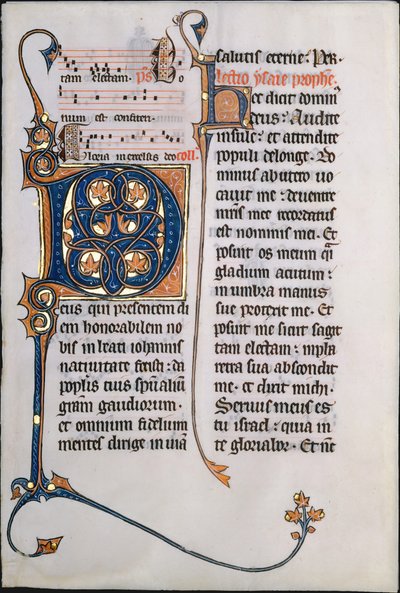 tam electam. ps Bo
num est confiteri
Gloria in excelsis deo coll.
Deus qui presentem di
em honorabilem no
bis in beati iohannis
natiuitate fecisti: da
populis tuis sp̄ualiū
gr̄am gaudiorum.
et omnium fidelium
mentes dirige in uiā
salutis eterne. Per.
lectio ysaie prophe.
Hec dicit domin
deus. Audite
insule: et attendite
populi delonge. Do
minus abutero uo
cauit me: deuentre
mr̄is mee recordatus
est nominis mei. Et
posuit os meum qͣ
gladium acutum:
in umbra manus
sue protexit me. Et
posuit me sicut sagit
tam electam: inpha
retra sua abscondit
me. et dixit michi.
Seruus meus es
tu israel: quia in
te gloriabor. Et nc̄